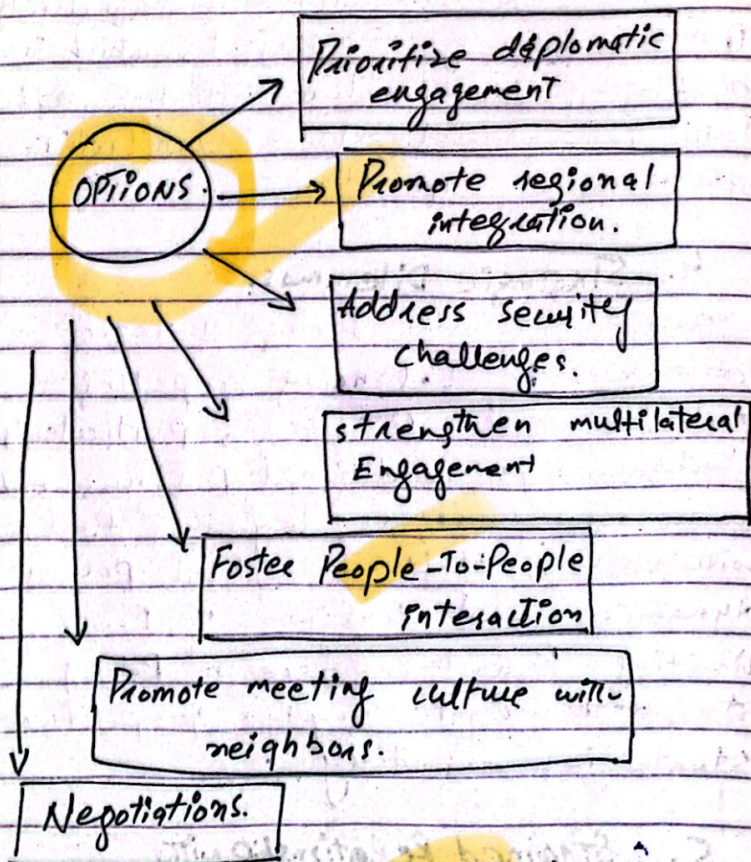 Prioritize diplomatic
engagement
OPTIONS.
Promote regional
integration.
Address security
challenges.
strengthen multilateral
Engagement
Foster People-To-People
interaction
Promote meeting culture with
neighbors.
Negotiations.